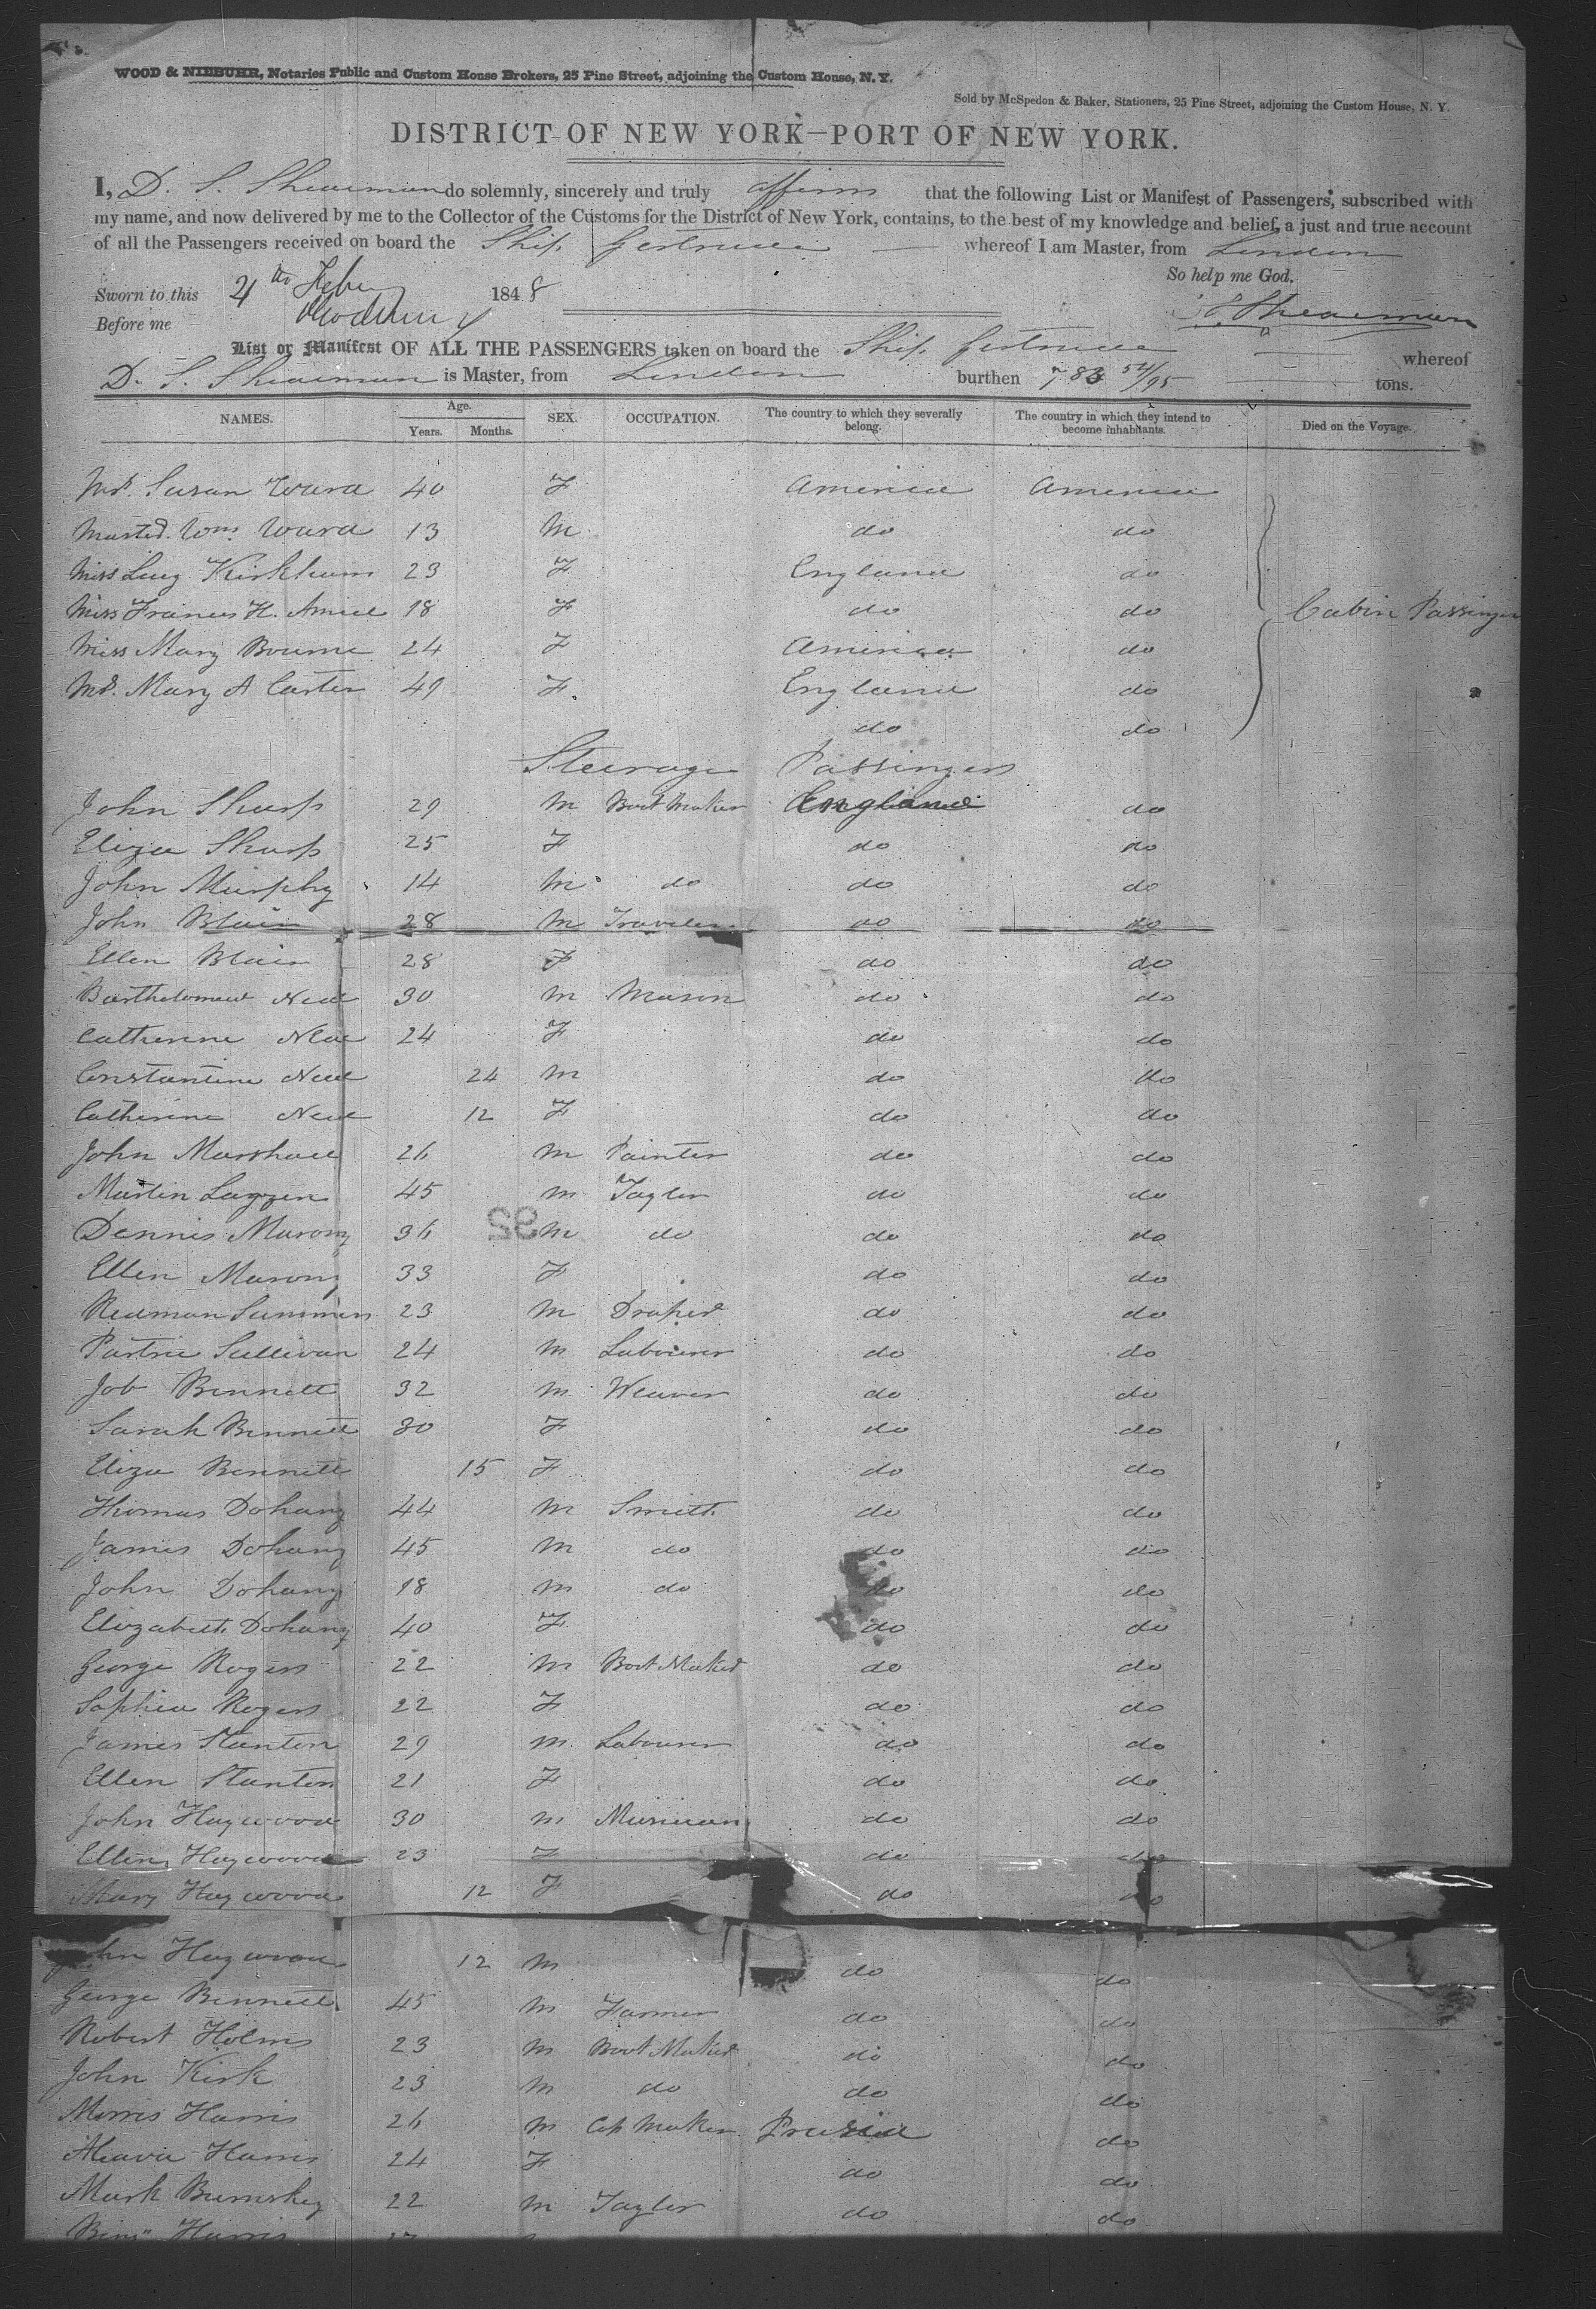 WOOD & NIEBUHR, Notaries Public and Custom House Brokers, 25 Pine Street, adjoining the Custom House, N. Y.
Sold by McSpedon & Baker, Stationers, 25 Pine Street, adjoining the Custom House, N. Y.
DISTRICT OF NEW YORK—PORT OF NEW YORK.
I, D. S. Shearman do solemnly, sincerely and truly affirm that the following List or Manifest of Passengers, subscribed with
my name, and now delivered by me to the Collector of the Customs for the District of New York, contains, to the best of my knowledge and belief, a just and true account
of all the Passengers received on board the Ship Gertrude whereof I am Master, from London
So help me God.
Sworn to this 4th Feby 1848
Before me
D. S. Shearman
List or Manifest OF ALL THE PASSENGERS taken on board the Ship Gertrude whereof
D. S. Shearman is Master, from London burthen 783 54/95 tons.
NAMES. Age. Years. Months. SEX. OCCUPATION. The country to which they severally belong. The country in which they intend to become inhabitants. Died on the Voyage.
Mrs. Susan Ward 40 F America America
Master Wm. Ward 13 M do do
Miss Lucy Kirkham 23 F England do
Miss Frances H. 18 F do do Cabin Passenger
Miss Mary Bourne 24 F America do
Mrs. Mary A Carter 49 F. England do
do do
Steerage Passingers
John Sharp 29 M Boot Maker England do
Eliza Sharp 25 F do do
John Murphy 14 M do do do
John Blair 28 M Traveler do do
Ellen Blair 28 F do do
Bartholomew Neal 30 M Mason do do
Catherine Neal 24 F do do
Constantine Neal 24 M do do
Catherine Neal 12 F do do
John Marshall 26 M Painter do do
Martin 45 M Tayler do do
Dennis Marony 36 M do do do
Ellen Marony 33 F do do
Summers 23 M Draper do do
Patric Sullivan 24 M Labourer do do
Job Bennett 32 M Weaver do do
Sarah Bennett 30 F do do
Eliza Bennett 15 F do do
Thomas Dohany 44 M Smith do do
James Dohany 45 M do do do
John Dohany 18 M do do do
Elizabeth Dohany 40 F do do
George Rogers 22 M Boot Maker do do
Sophia Rogers 22 F do do
James Stanton 29 M Labourer do do
Ellen Stanton 21 F do do
John Haywood 30 M Musician do do
Ellen Haywood 23 F do do
Mary Haywood 12 F do do
John Haywood 12 M do do
George Bennett 45 M Farmer do do
Robert Holms 23 M Boot Maker do do
John Kirk 23 M do do do
Morris Harris 26 M Cap Maker Prusia do
Harris 24 F do do
Mark 22 M Tayler do do
Benj" Harris